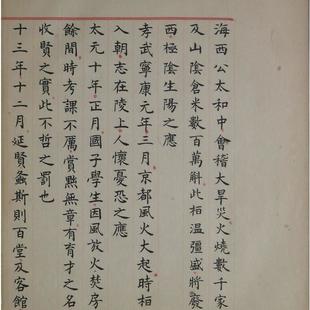 海西公太和中會稽大旱災火燒數千家
及山陰倉米數百萬斛此桓溫彊盛將廢
西極陰生陽之應
孝武寧康元年三月京都風火大起時桓
入朝志在陵上人懷憂恐之應
太元十年正月國子學生因風放火焚房
餘間時考課不厲賞黜無章有育才之名
收賢之實此不哲之罰也
十三年十二月延賢螽斯則百堂及客館